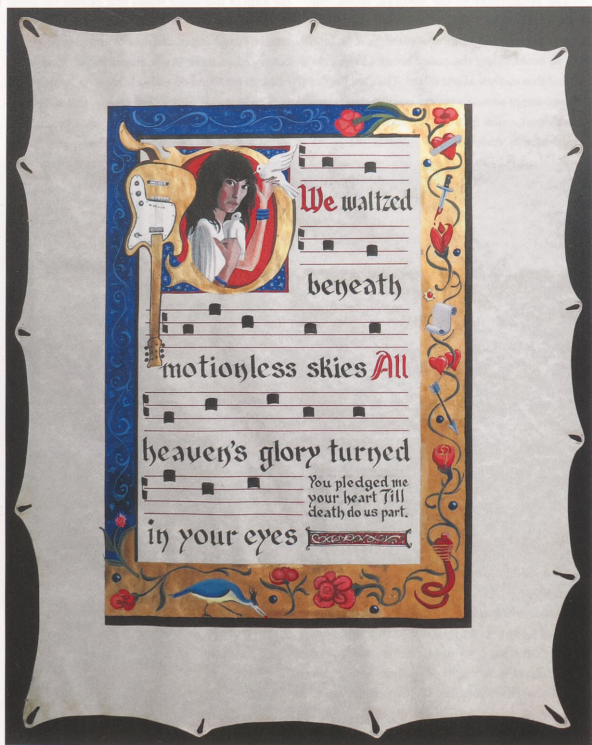 We waltzed
beneath
motionless skies All
heaven's glory turned
in your eyes
You pledged me
your heart Till
death do us part.